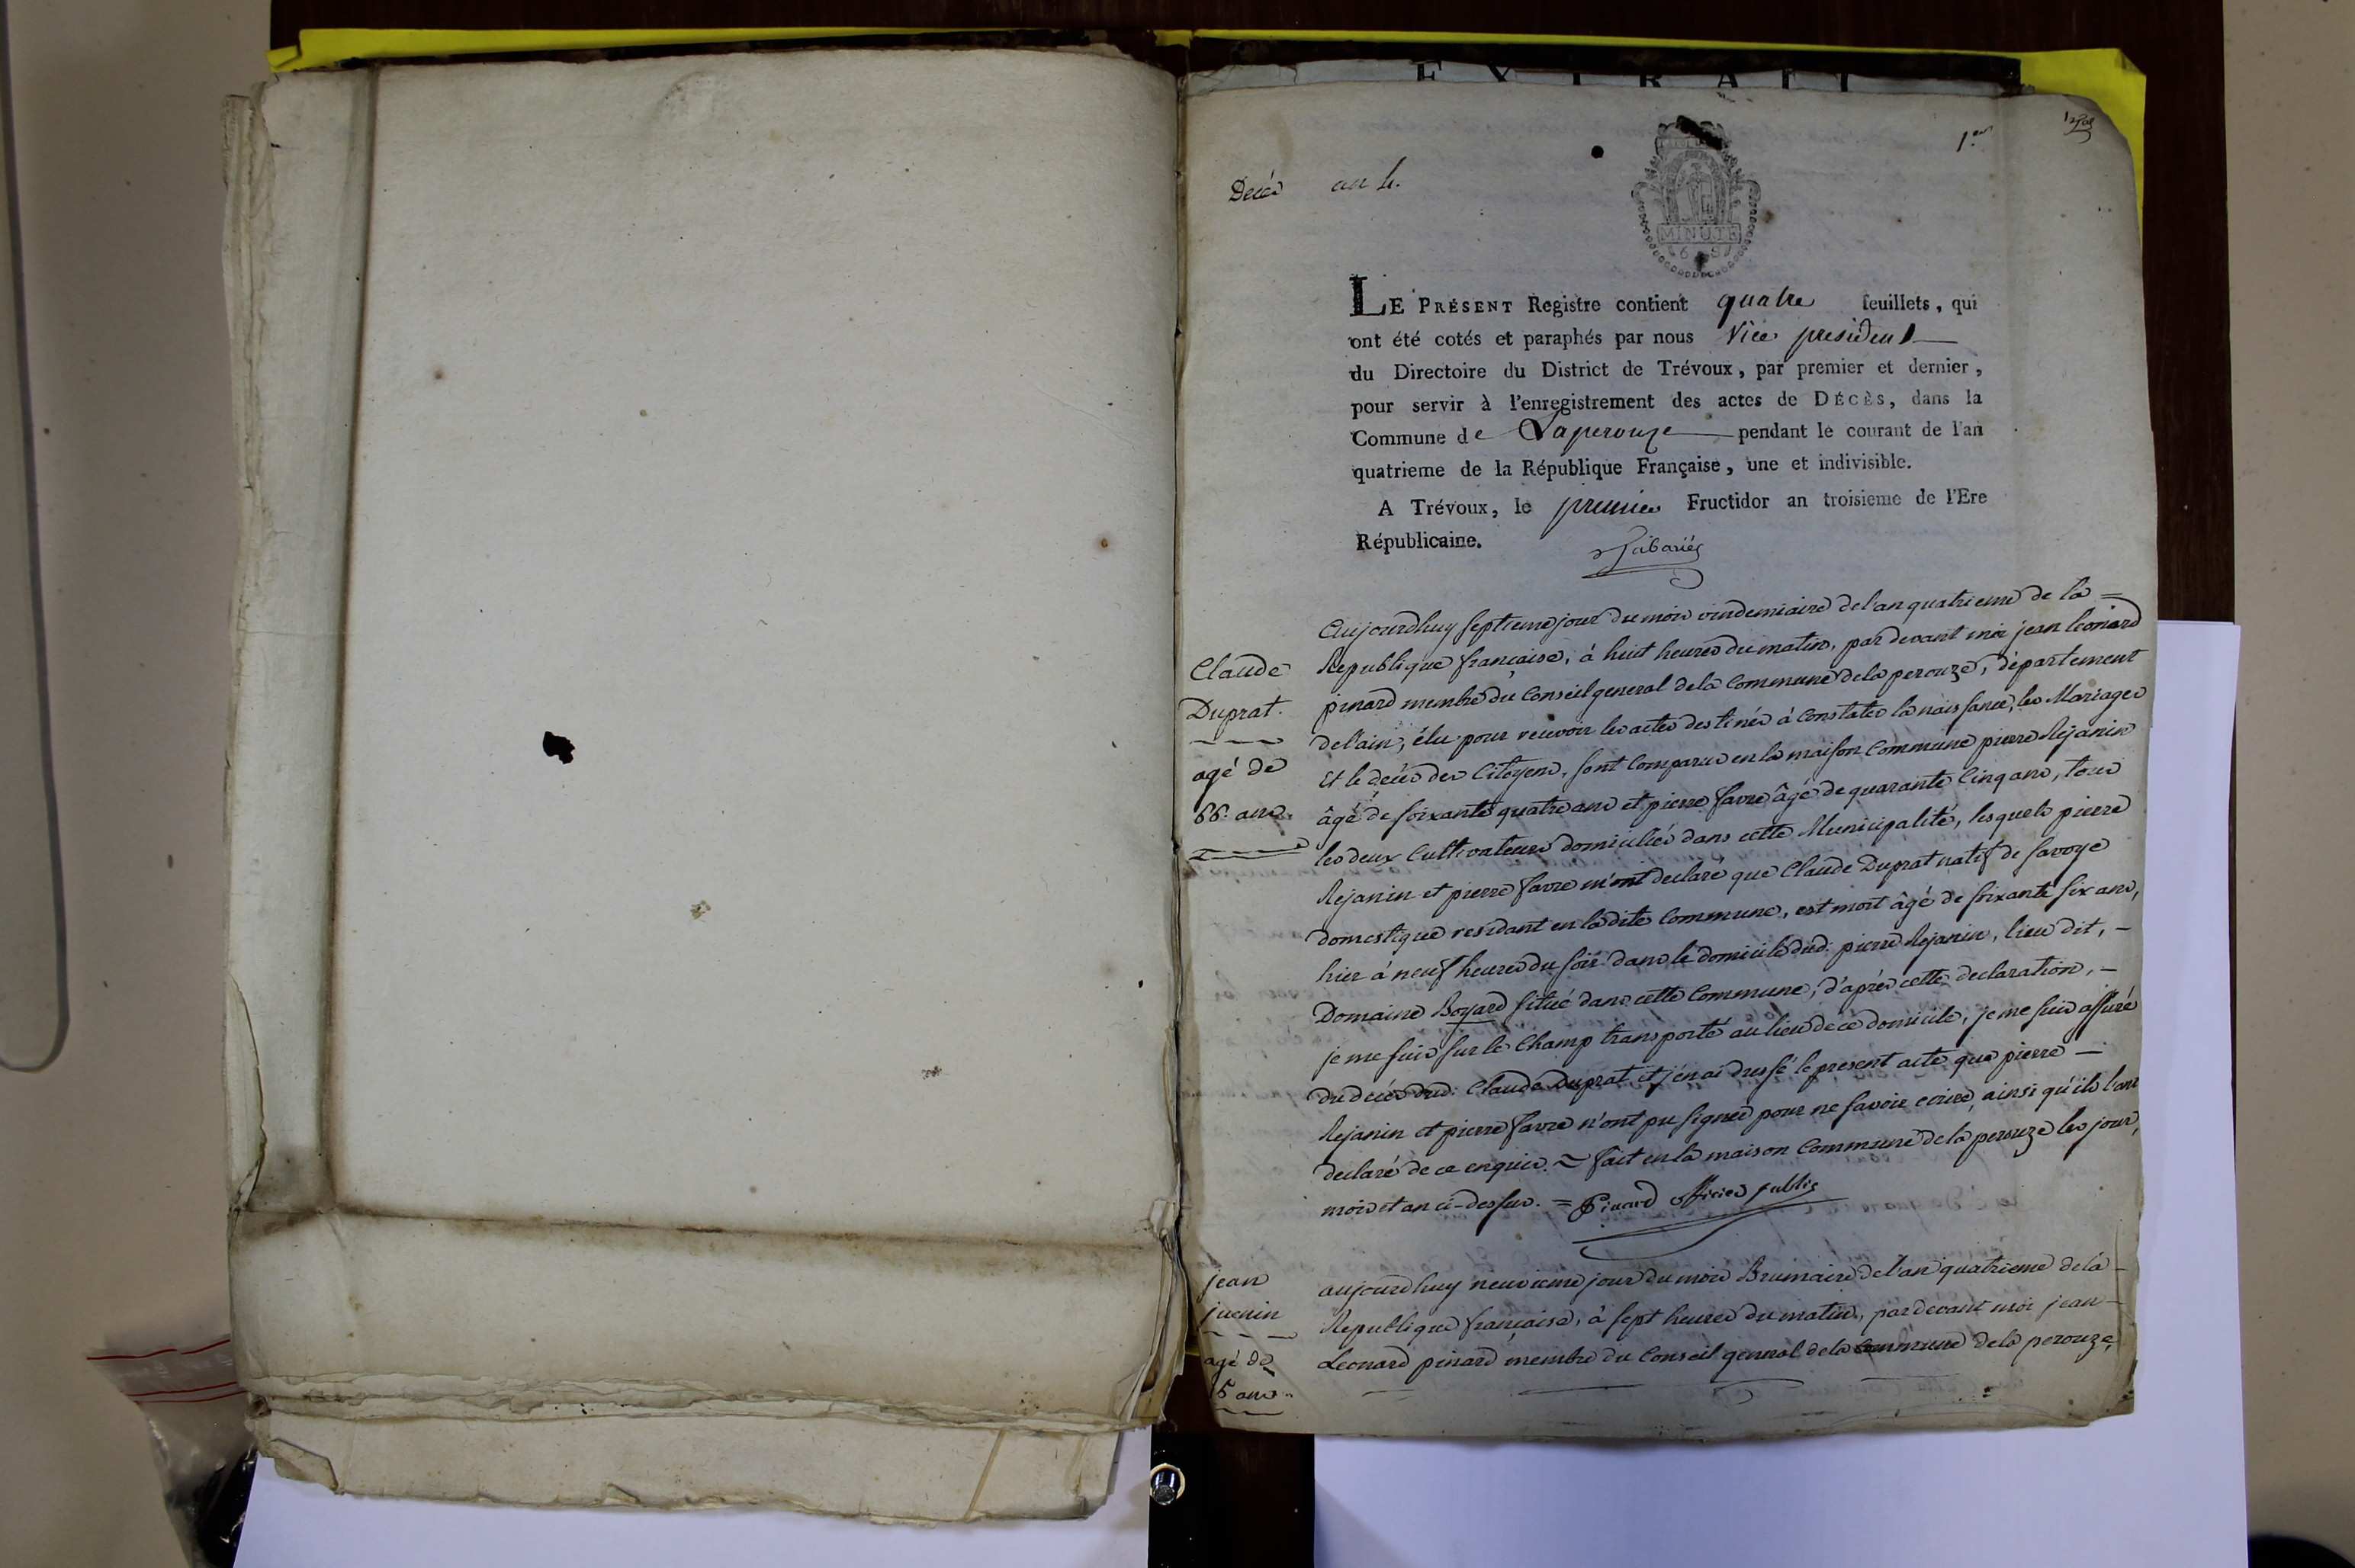 EXTRAIT
1.er
Décès an 4.
MINUTE
LE PRÉSENT Registre contient quatre feuillets, qui
ont été cotés et paraphés par nous Vice president
du Directoire du District de Trévoux, par premier et dernier,
pour servir à l'enregistrement des actes de DÉCÈS, dans la
Commune de Laperouze pendant le courant de l'an
quatrieme de la République Française, une et indivisible.
A Trévoux, le premier Fructidor an troisieme de l'Ere
Républicaine.
Claude
Duprat.
agé de
66. ans.
Aujourdhuy septieme jour du mois vindemiaire de l'an quatrieme de la =
Republique francaise, à huit heures du matin, par devant moi jean leonard
pinard membre du Conseil general de la Commune de la perouze, département
de l'ain, élu pour recevoir les actes destinés à Constater la naissance, les Mariages
Et le décès des Citoyens, sont Comparus en la maison Commune pierre Rejanin
âgé de soixante quatre ans et pierre favre âgé de quarante Cinq ans, tous
les deux Cultivateurs domiciliés dans cette Municipalité, lesquels pierre
Rejanin et pierre favre m'ont declaré que Claude Duprat natif de savoye
domestique residant en la dite Commune, est mort âgé de soixante six ans,
hier à neuf heures du soir dans le domicile dud. pierre Rejanin, lieu dit, -
Domaine Boyard situé dans cette Commune, d'après cette declaration, -
je me suis sur le Champ transporté au lieu de ce domicile, je me suis assuré
du décès dud. Claude Duprat et j'en ai dressé le present acte que pierre -
Rejanin et pierre favre n'ont pu signer pour ne savoir ecrire, ainsi qu'ils l'ont
declaré de ce enquis. ~ fait en la maison Commune de la perouze les jour,
mois et an ci-dessus. = Pinard officier public
jean
juenin
agé de
5 ans.
aujourdhuy neuvieme jour du mois Brumaire de l'an quatrieme de la -
Republique francaise, à sept heures du matin, pardevant moi jean -
Leonard pinard membre du Conseil general de la Commune de la perouze,